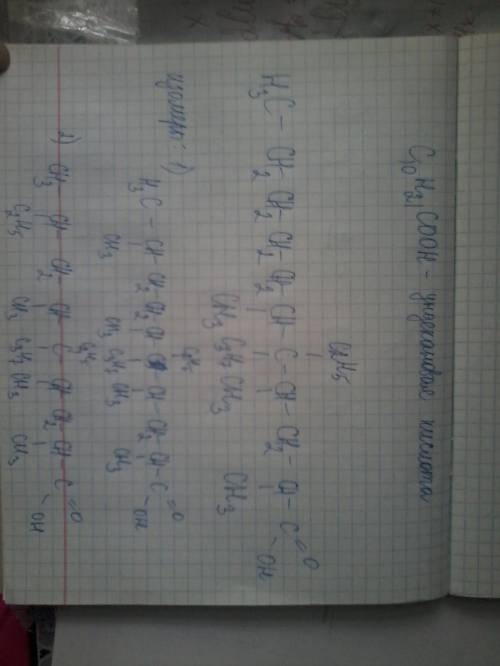 C₁₀H₂₁COOH - ундекановая кислота
C₂H₅
H₃C - CH₂ CH₂ CH₂ CH₂ - CH - C - CH - CH₂ - CH - C = O
CH₃ C₃H₇ CH₃ CH₃ OH
изомеры: 1)
C₂H₅
H₃C - CH CH₂ CH₂ CH CH CH₂ CH - C = O
CH₃ CH₃ C₃H₇ CH₃ CH₃ OH
2)
CH₃ CH CH₂ - CH C CH CH₂ CH - C = O
C₂H₅ CH₃ C₃H₇ CH₃ CH₃ OH